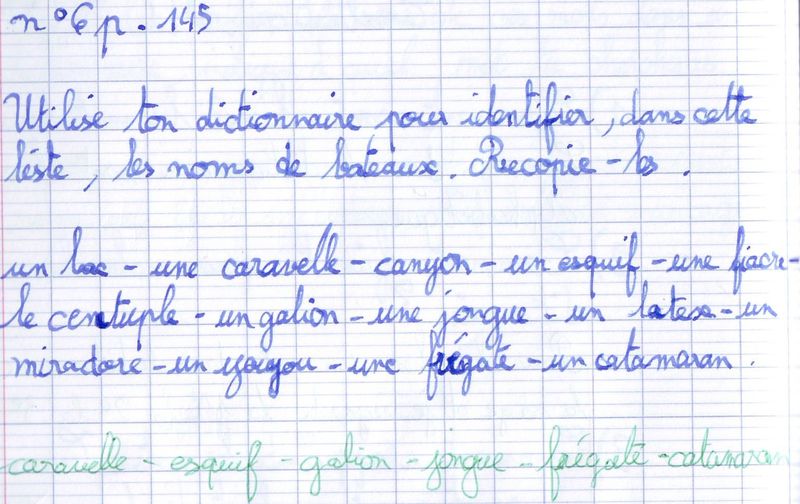 n°6 p. 145
Utilise ton dictionnaire pour identifier, dans cette
liste, les noms de bateaux. Recopie-les.
un bac - une caravelle - canyon - un esquif - une fiacre -
le centuple - un galion - une jongue - un latex - un
miradore - un youyou - une frégate - un catamaran.
caravelle - esquif - galion - jongue - frégate - catamaran